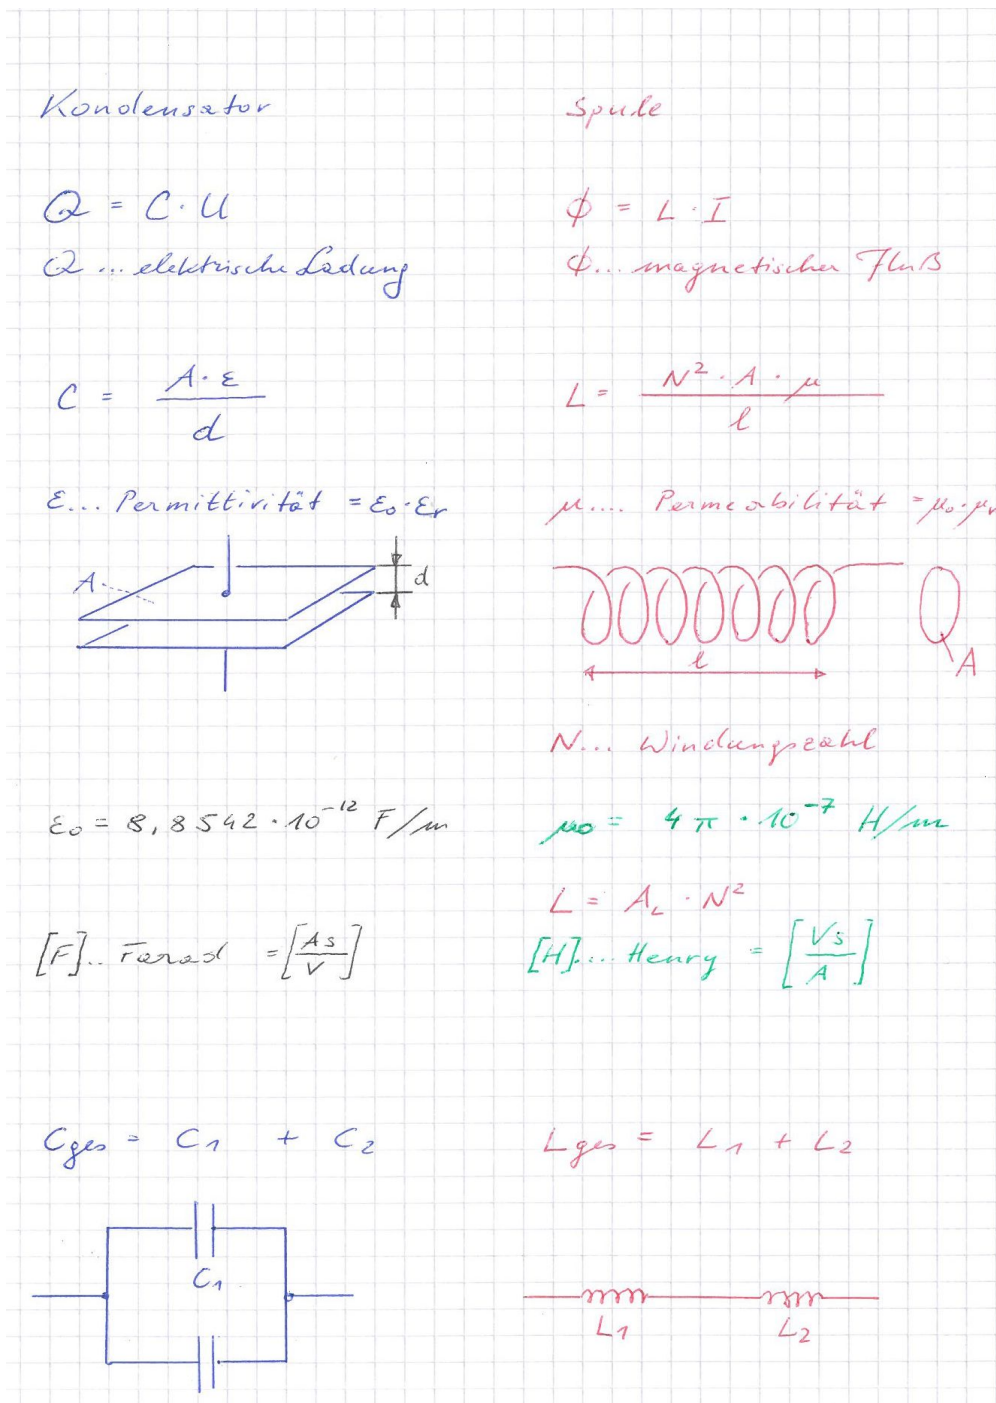 Kondensator
Q = C · U
Q ... elektrische Ladung
C = A · ε / d
ε... Permittivität = ε₀ · εr
A
d
ε₀ = 8,8542 · 10⁻¹² F/m
[F].. Farad = [As/V]
Cges = C₁ + C₂
C₁
Spule
ϕ = L · I
ϕ... magnetischer Fluß
L = N² · A · μ / l
μ.... Permeabilität = μ₀ · μr
l
A
N... Windungszahl
μ₀ = 4π · 10⁻⁷ H/m
L = A_L · N²
[H].... Henry = [Vs/A]
Lges = L₁ + L₂
L₁ L₂